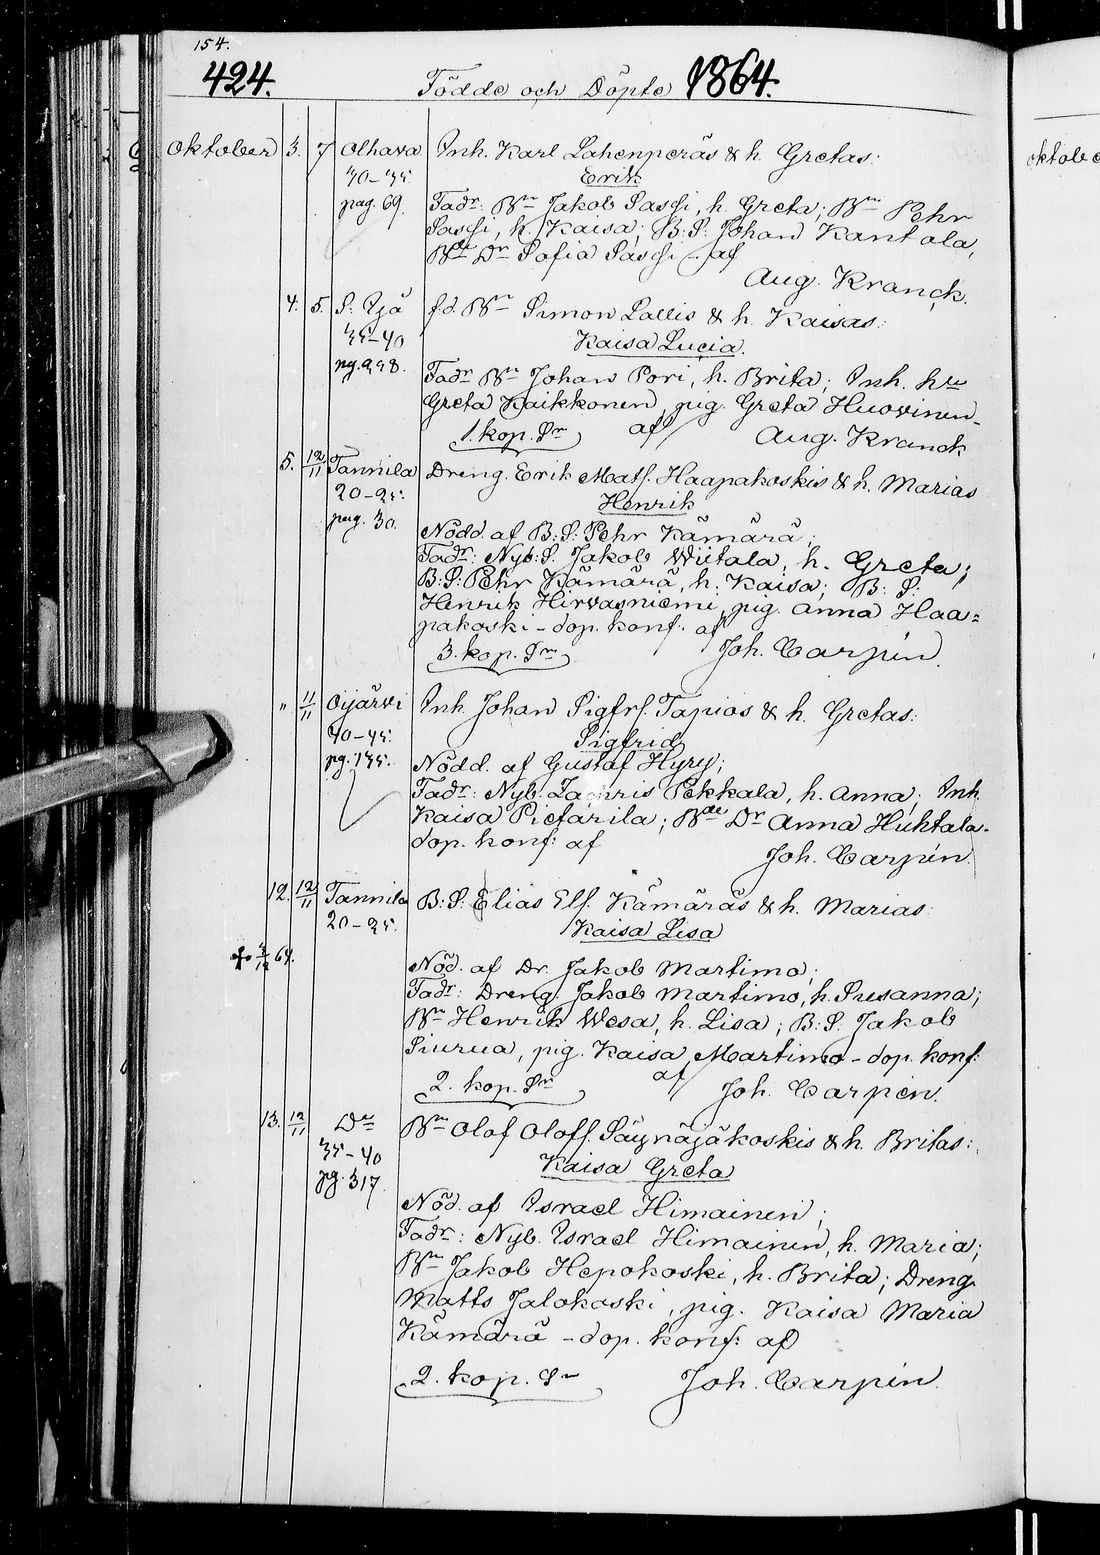 154.
424. Födde och Döpte 1864.
Oktober 3. 7 Olhava Inh. Karl Lahenperäs & h. Gretas:
30-35. Erik
pag. 69. Fadr: Bn Jakob Passi, h. Greta; Bn Pehr
Passi, h. Kaisa; B: S: Johan Kantola,
Bde Dr Sofia Passi - af
Aug. Kranck.
4. 5. S: Ijå fd. Bn Simon Lallis & h. Kaisas:
35-40 Kaisa Lucia.
pg. 298. Fadr Bn Johan Pori, h. Brita; Inh. hru
Greta Kaikkonen, pig. Greta Huovinen.
1. kop. Sm af Aug. Kranck
5. 12/11 Tannila Dreng. Erik Matss. Haapakoskis & h. Marias
20-25. Henrik
pag. 30. Nödd. af B: S: Pehr Kämärä;
Fadr: Nyb: S. Jakob Wiitala, h. Greta;
B: S: Pehr Kämärä, h. Kaisa; B: S:
Henrik Hirvasniemi, pig. Anna Haa=
pakoski - dop. konf. af
3. kop. Sm Joh. Carpén.
" 11/11 Oijärvi Inh. Johan Sigfrs. Tapios & h. Gretas:
40-45. Sigfrid
pg. 135. Nödd. af Gustaf Hyry;
Fadr: Nyb. Zachris Pekkala, h. Anna; Inh
Kaisa Pietarila; Bde Dr Anna Huhtala.
dop. konf: af Joh. Carpén.
12. 12/11 Tannila B: S: Elias Elf. Kämäräs & h. Marias:
20-25. Kaisa Lisa
64. Nöd. af Dr. Jakob Martimo;
Fadr: Dreng. Jakob Martimo, h. Susanna;
Bn Henrik Wesa, h. Lisa; B: S. Jakob
Siurua, pig. Kaisa Martimo - dop. konf:
2. kop. Sm af Joh. Carpén.
13. 12/11 Do Bn Olof Oloff. Säynäjäkoskis & h. Britas:
35-40 Kaisa Greta
pg. 317. Nöd. af Israel Himainen;
Fadr: Nyb. Israel Himainen, h. Maria;
Bn Jakob Hepokoski, h. Brita; Dreng.
Matts Jalokoski, pig. Kaisa Maria
Kämärä - dop. konf: af
2. kop. Sm Joh. Carpén.
Oktobe